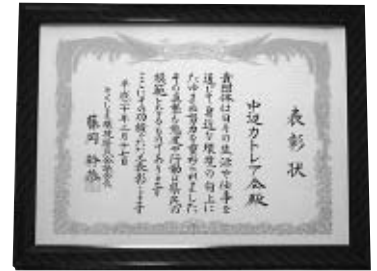 表彰状
中辺カトレア会殿
貴団体は日々の生活や仕事を
通じて身近な環境の向上に
たゆまぬ努力を重ねられました
その真摯な態度や行動は県民の
模範となるものであります
ここにその功績をたたえ表彰します
平成二十年三月十七日
藤岡